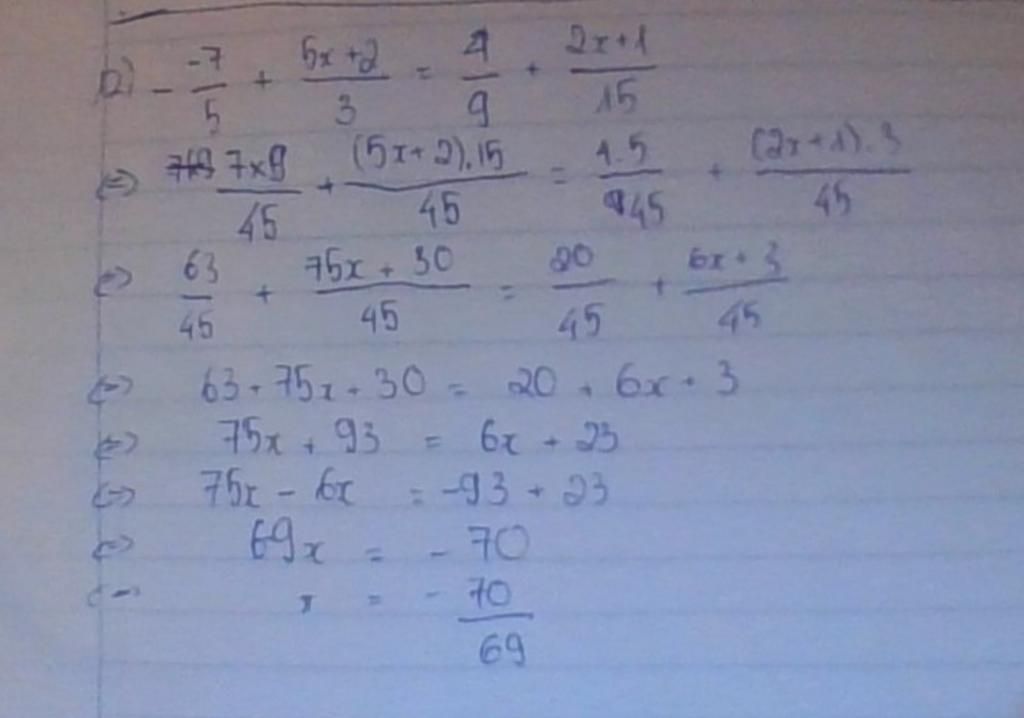 2) - -7/5 + 5x+2/3 = 4/9 + 2x+1/15
<=> 7x9/45 + (5x+2).15/45 = 4.5/45 + (2x+1).3/45
<=> 63/45 + 75x + 30/45 = 20/45 + 6x + 3/45
<=> 63 + 75x + 30 = 20 + 6x + 3
<=> 75x + 93 = 6x + 23
<=> 75x - 6x = -93 + 23
<=> 69x = - 70
<=> x = - 70/69